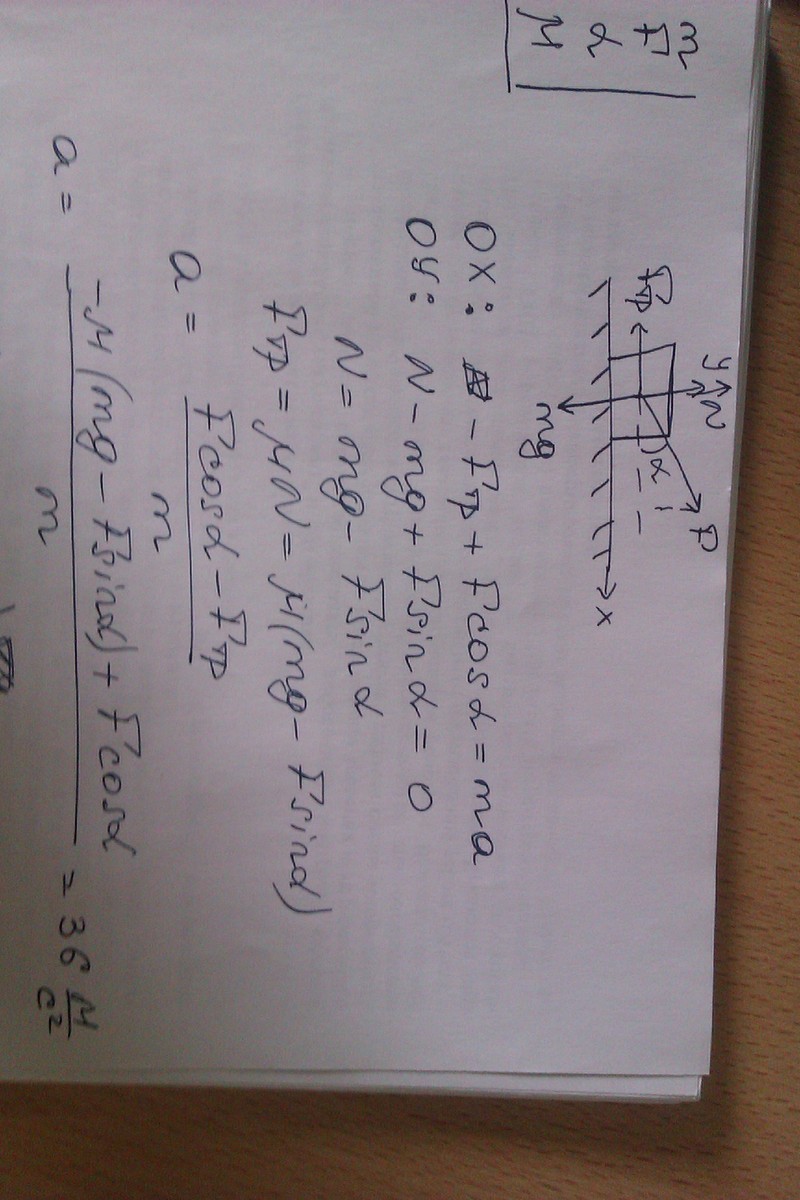 m
F
α
μ
y
N
F
α
Fтр
x
mg
OX: - Fтр + Fcosα = ma
OY: N - mg + Fsinα = 0
N = mg - Fsinα
Fтр = μN = μ(mg - Fsinα)
a = (Fcosα - Fтр) / m
a = (-μ(mg - Fsinα) + Fcosα) / m = 36 м/с²